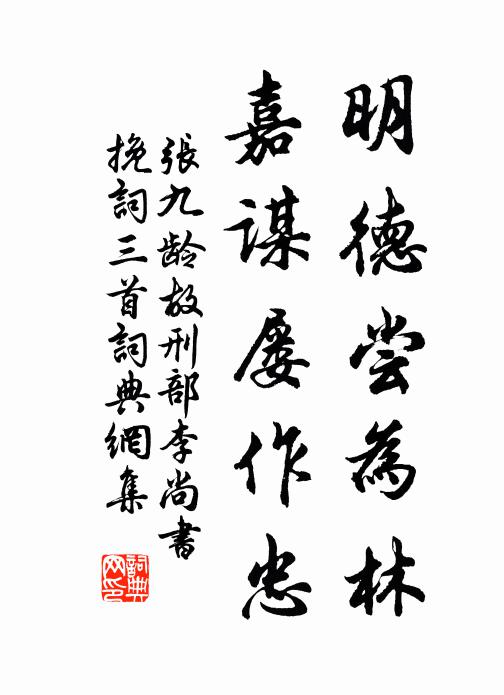 明德尝為林
嘉谋屡作忠
張九龄故刑部李尚書
挽詞三首詞典網集
詞典网印